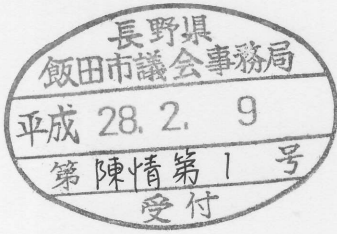 長野県
飯田市議会事務局
平成 28. 2. 9
第 陳情第1 号
受付